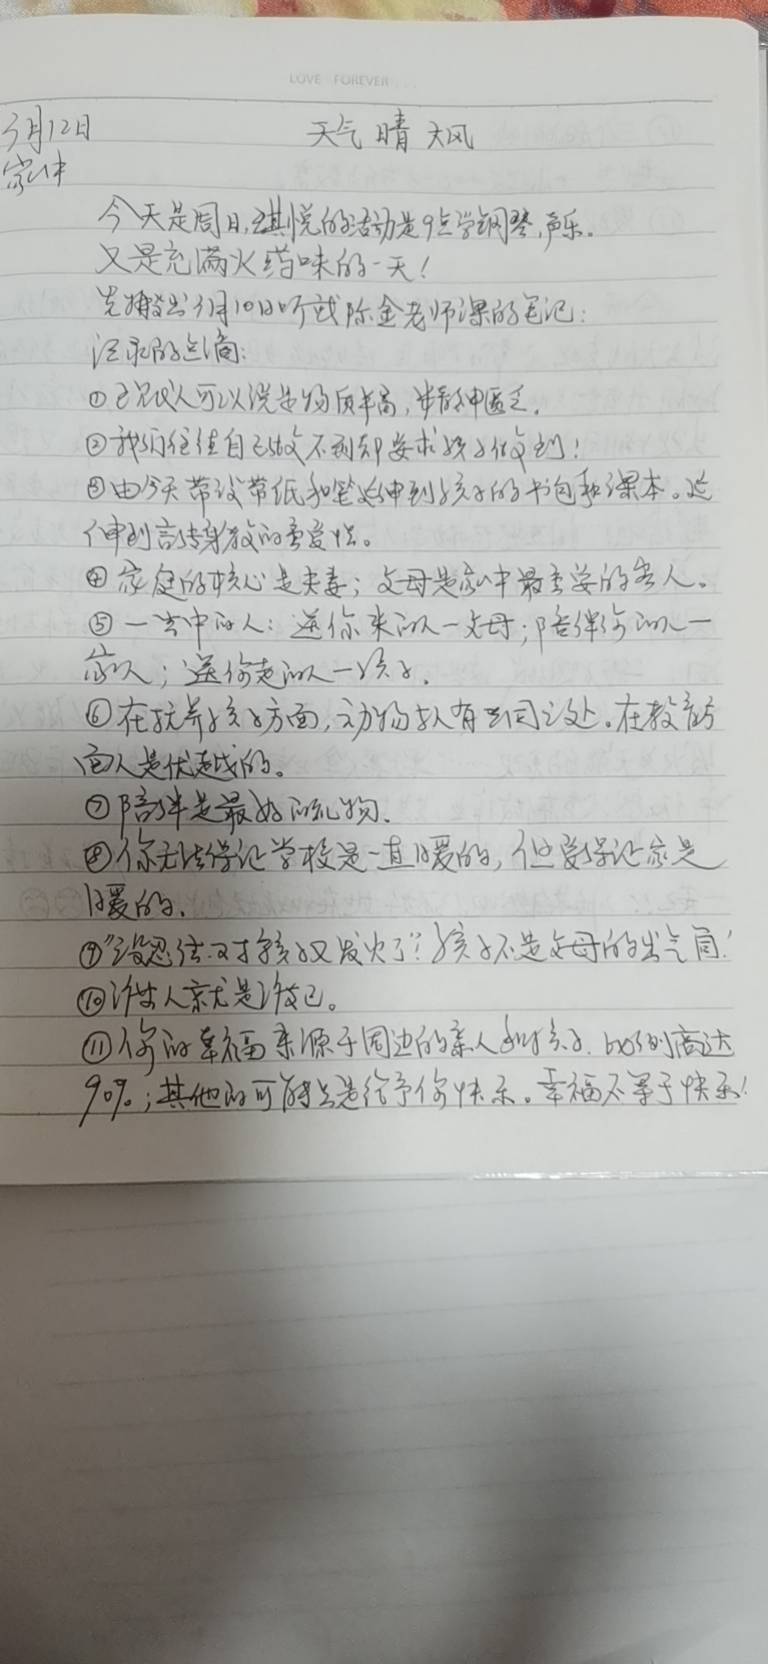 LOVE FOREVER...
3月12日 天气 晴 大风
家中
今天是周日,琪悦的活动是9点学钢琴,声乐。
又是充满火药味的一天!
先搬出3月10日听我陈金老师课的笔记:
记录的点滴:
①现代人可以说是物质丰富,精神匮乏。
②我们往往自己做不到却要求孩子做到!
③由今天带没带纸和笔延伸到孩子的书包和课本。延
伸到言传身教的重要性。
④家庭的核心是夫妻;父母是家中最重要的客人。
⑤一生中的人:送你来的人一父母;陪伴你的人一
家人;送你走的人一孩子。
⑥在抚养孩子方面,动物和人有共同之处。在教育方
面人是优越的。
⑦陪伴是最好的礼物。
⑧你无法保证学校是一直暖的,但要保证家是
暖的。
⑨"没忍住对孩子又发火了"?孩子不是父母的出气筒!
⑩许人就是许己。
⑪你的幸福来源于周边的亲人和孩子,比例高达
90%;其他的可能只是给予你快乐。幸福不等于快乐!